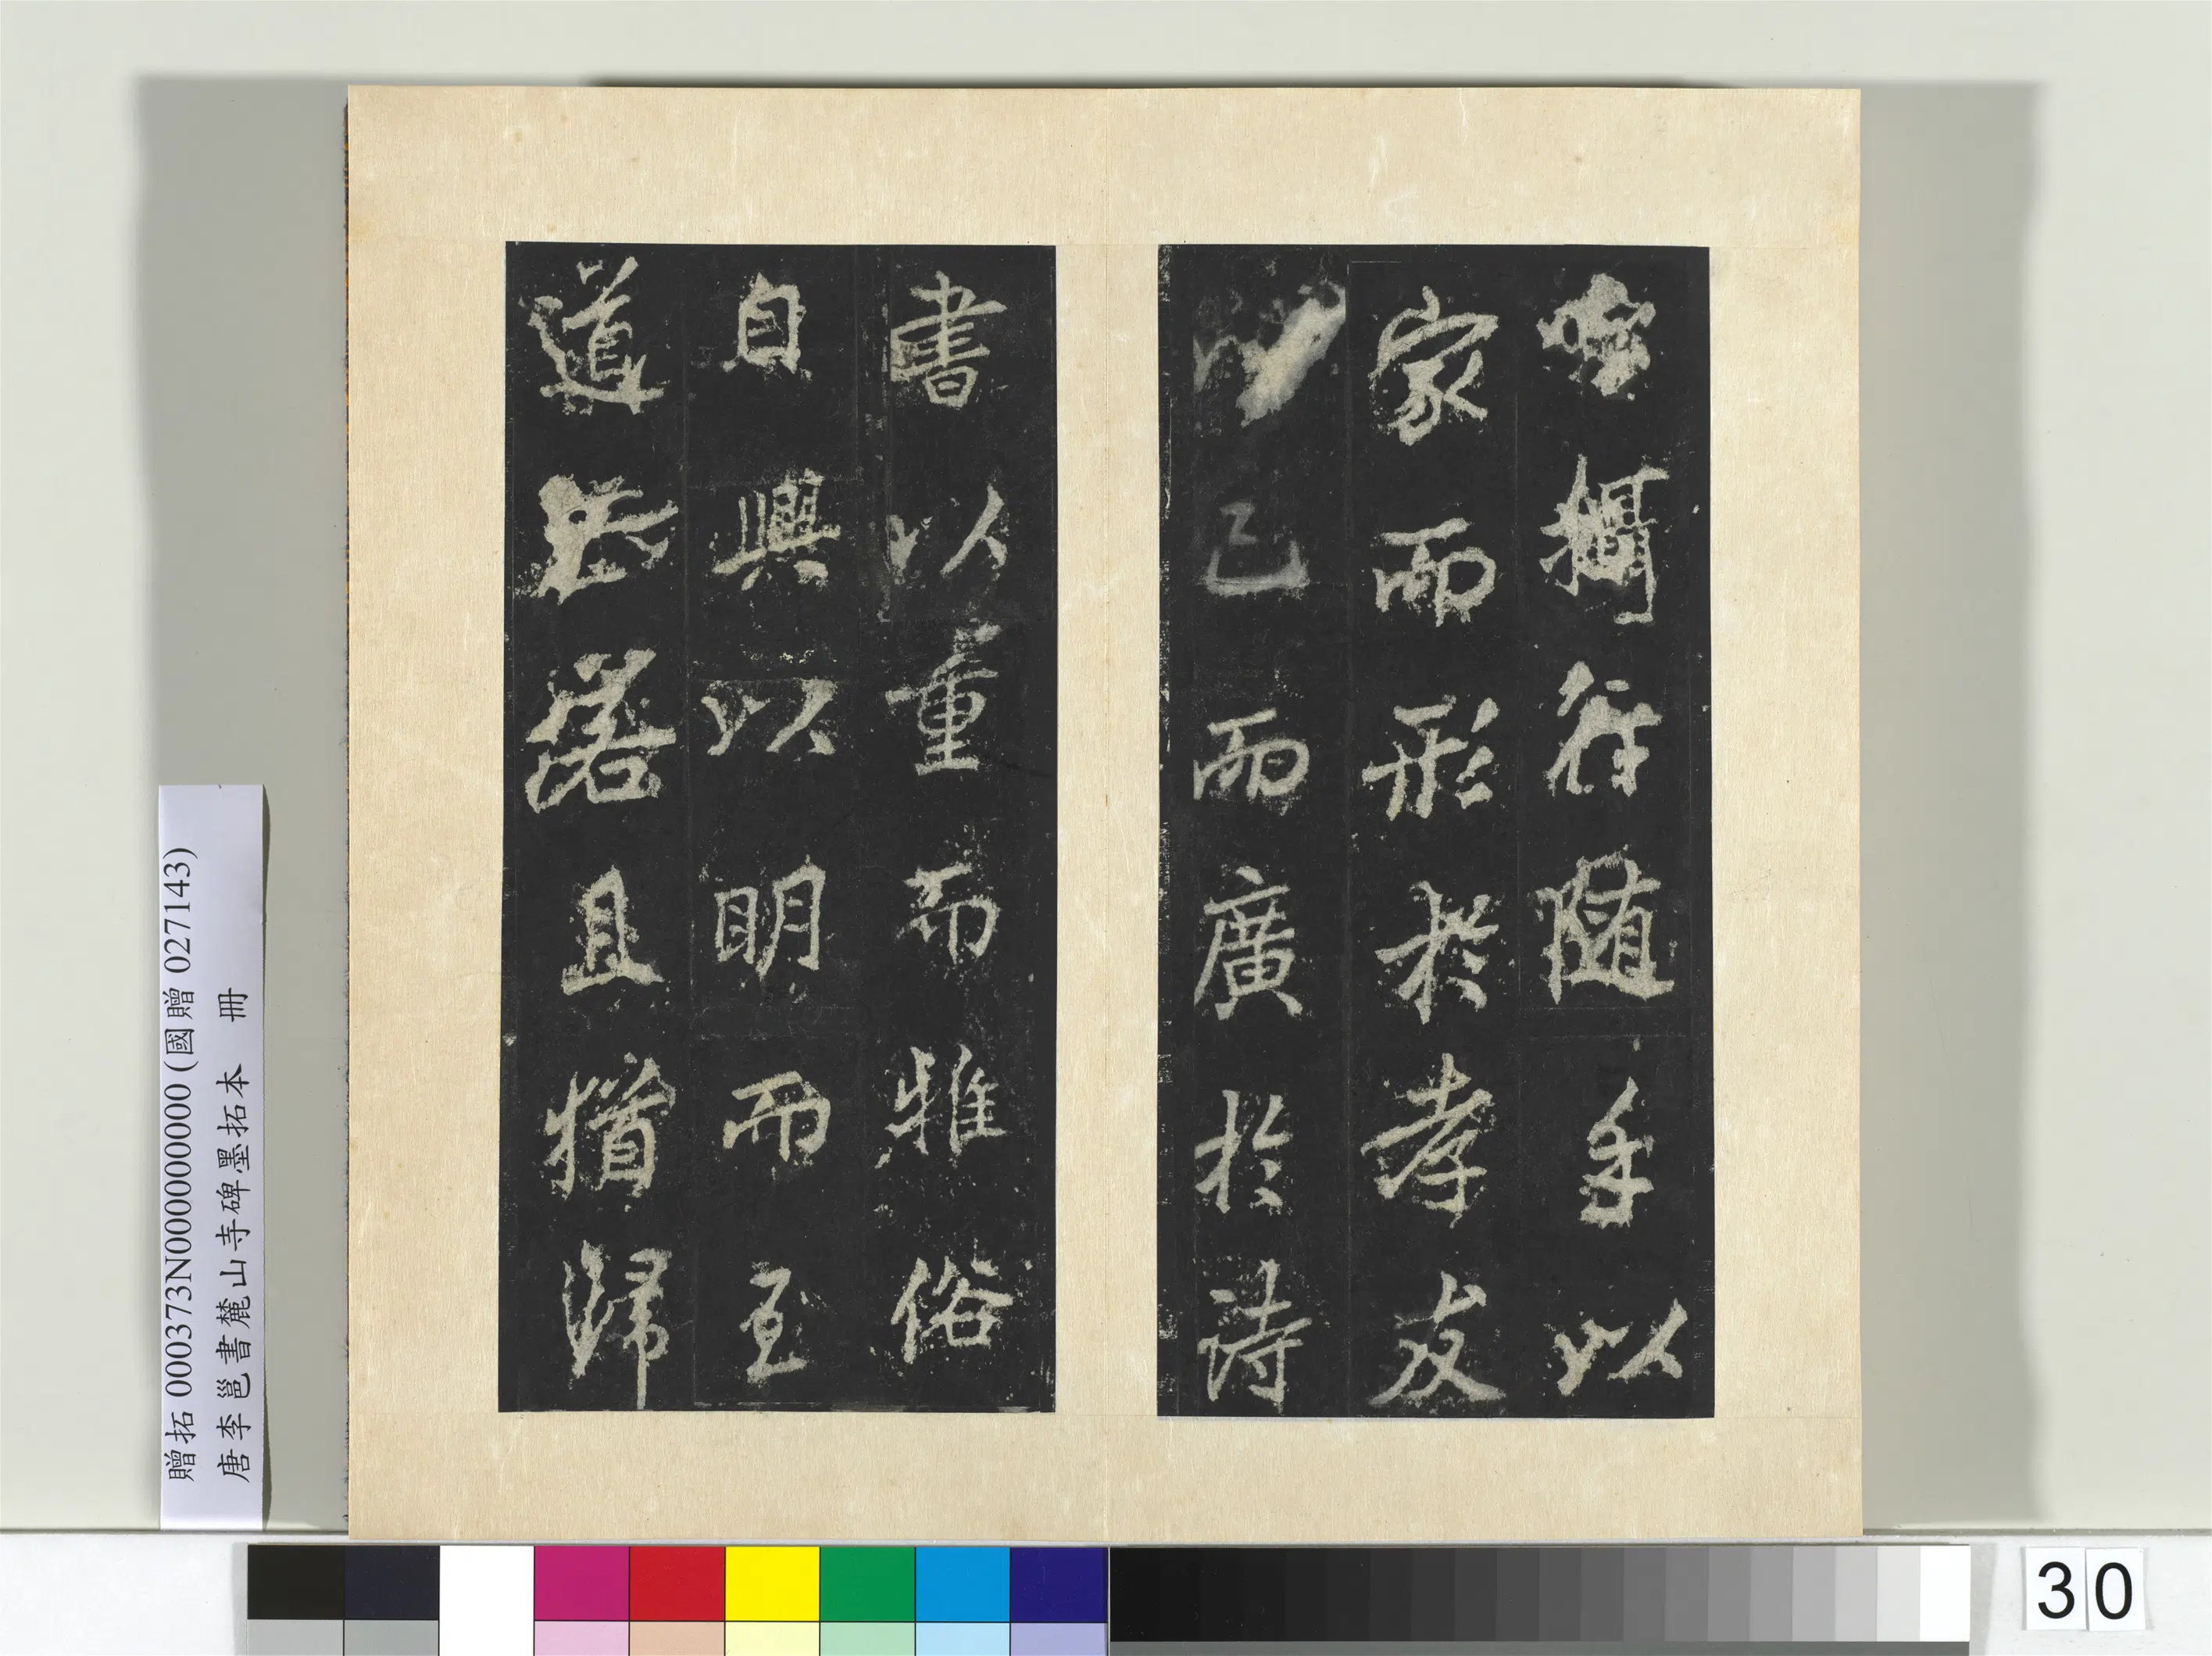 攝衽隨手以
家而形於孝友
已而廣於詩
書以重而雅俗
自興以明而至
道若且猶歸
贈拓 000373N000000000 (國贈 027143)
唐李邕書麓山寺碑墨拓本 冊
30